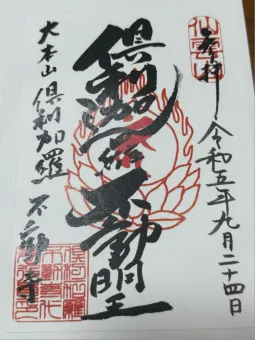 奉拝
令和五年九月二十四日
倶利迦羅不動明王
大本山倶利加羅不動寺